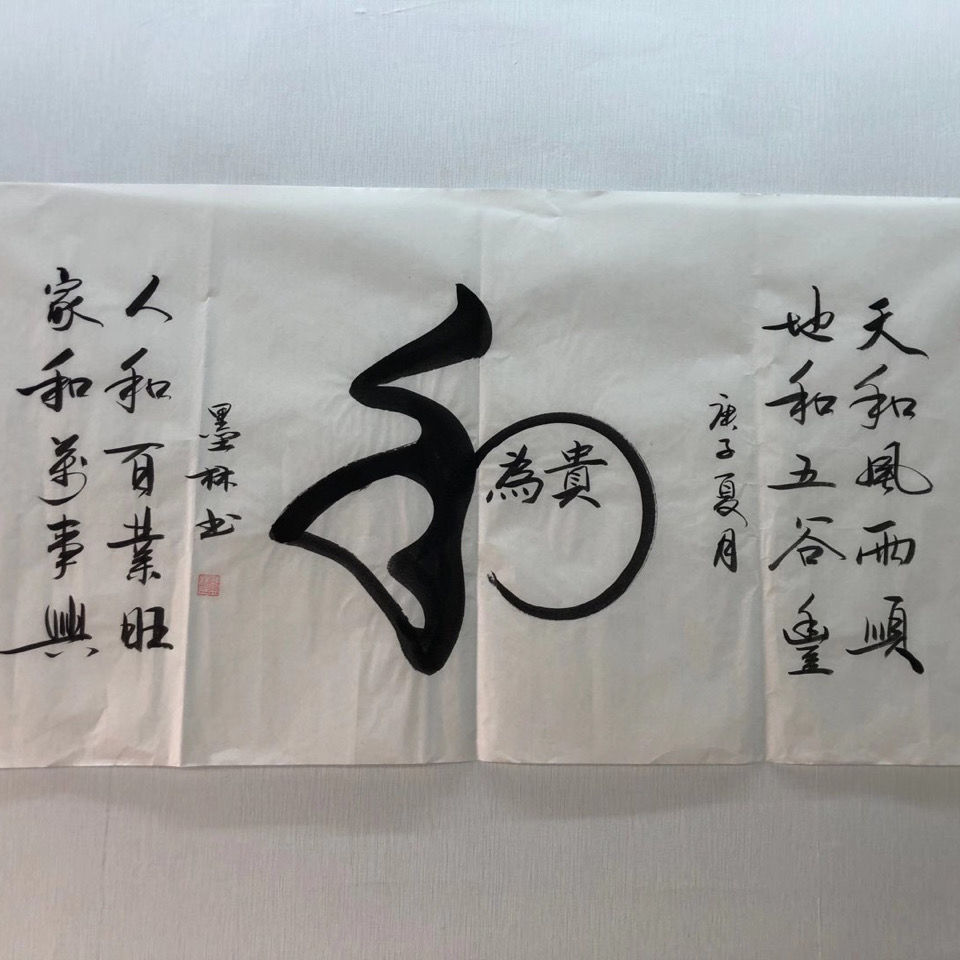 天和風雨順
地和五谷豐
庚子夏月
和
為貴
墨林书
人和百業旺
家和萬事興